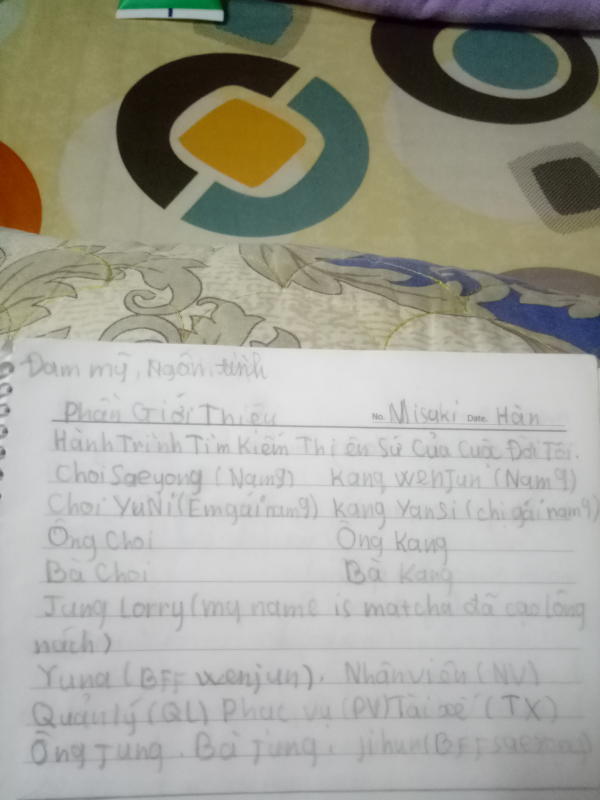 Đam mỹ, Ngôn tình
Phần Giới Thiệu No. Misaki Date. Hàn
Hành Trình Tìm Kiếm Thiên Sứ Của Cuộc Đời Tôi.
Choi Saeyong (Nam 9) Kang Wenjun (Nam 9)
Choi YuNi (Em gái nam 9) Kang Yansi (chị gái nam 9)
Ông Choi Ông Kang
Bà Choi Bà Kang
Jung Lorry (my name is matcha đã cạo lông
nách)
Yuna (BFF wenjun), Nhân viên (NV)
Quản lý (QL) Phục vụ (PV) Tài xế (TX)
Ông Jung, Bà Jung, jihun (BFF saeyong)